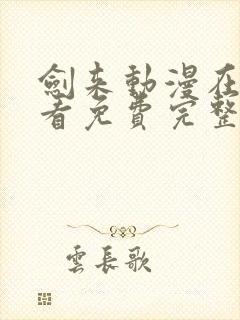 劍来動漫在
看免費完整
雲長歌